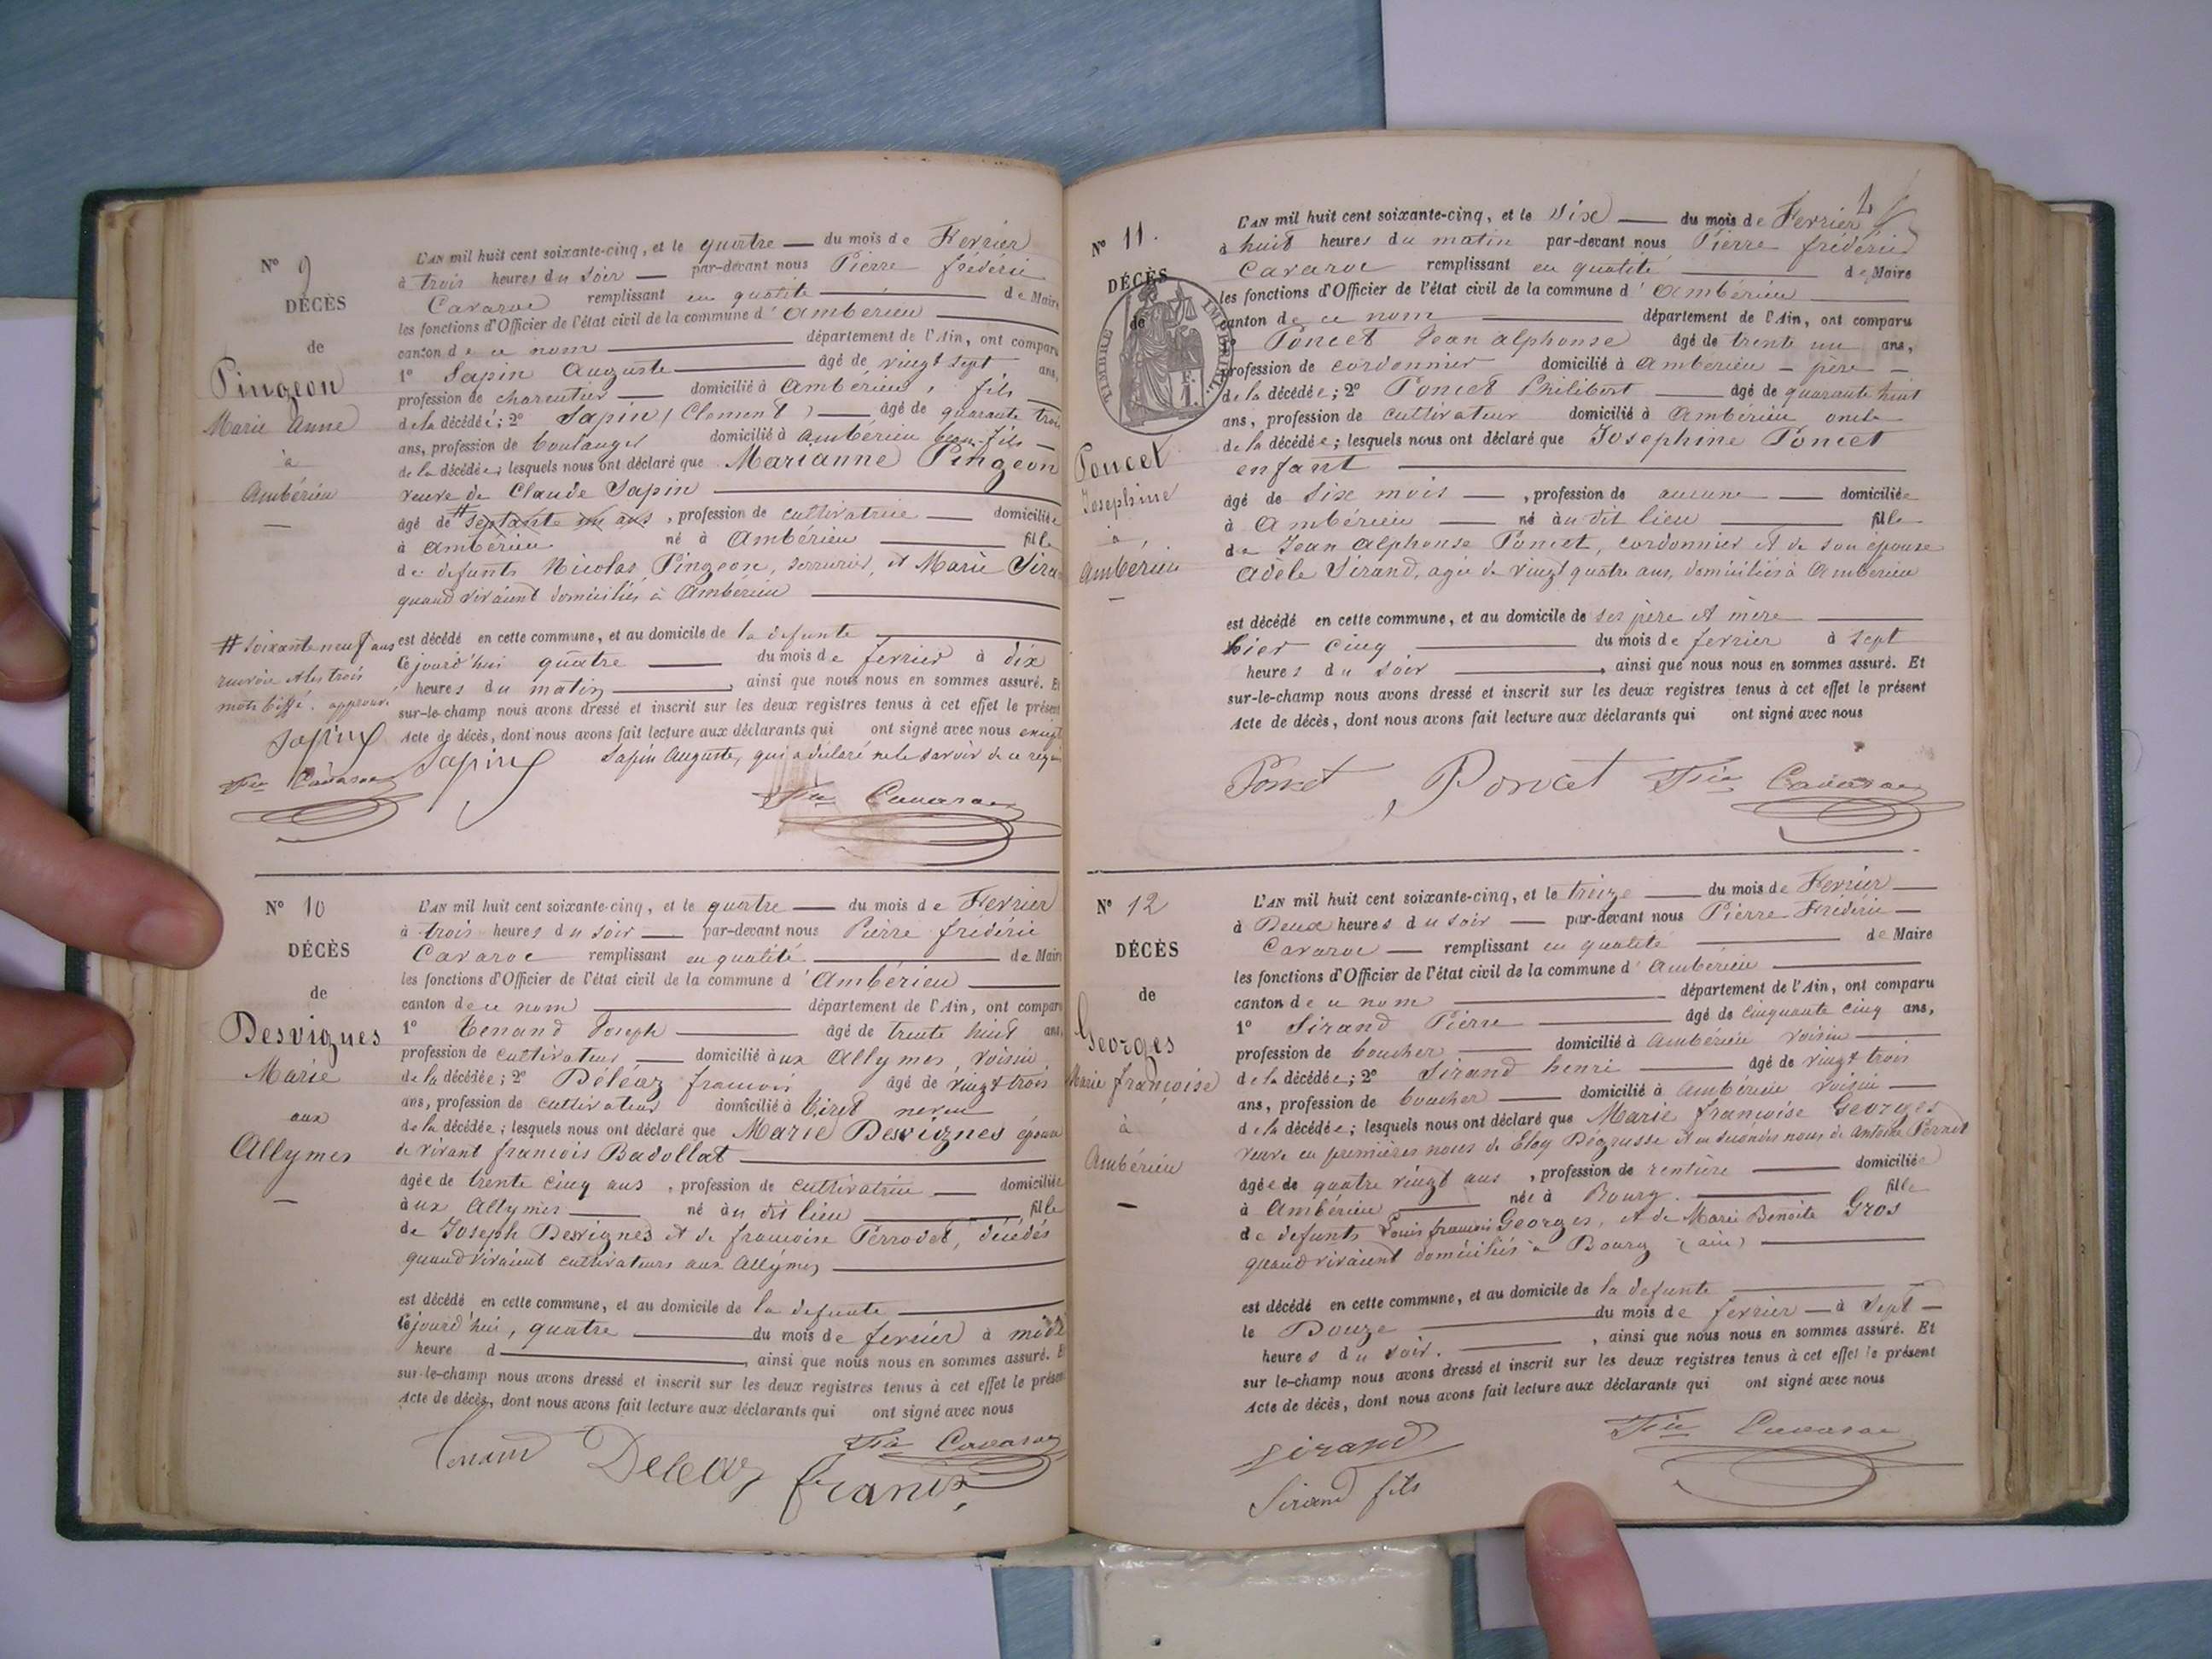 N° 9
DÉCÈS
de
Pingeon
Marie Anne
à
Ambérieu
L'AN mil huit cent soixante-cinq, et le quatre du mois de Fevrier
à trois heures du soir par-devant nous Pierre frédéric
Cavaroc remplissant en qualité de Maire
les fonctions d'Officier de l'état civil de la commune d'Ambérieu
canton de ce nom département de l'Ain, ont comparu
1° Sapin Auguste âgé de vingt sept ans,
profession de charcutier domicilié à Ambérieu, fils
de la décédée; 2° Sapin (Clement) âgé de quarante trois
ans, profession de boulanger domicilié à Ambérieu beau-fils
de la décédée; lesquels nous ont déclaré que Marianne Pingeon
veuve de Claude Sapin
âgé de # septante un ans, profession de cultivatrice domiciliée
à Ambérieu né à Ambérieu fille
de defunts Nicolas Pingeon, serrurier, et Marie
quand vivaient domiciliés à Ambérieu
est décédé en cette commune, et au domicile de la defunte
Cejourd'hui quatre du mois de fevrier à dix
heures du matin, ainsi que nous nous en sommes assuré. Et
sur-le-champ nous avons dressé et inscrit sur les deux registres tenus à cet effet le présent
Acte de décès, dont nous avons fait lecture aux déclarants qui ont signé avec nous excepté
Sapin Auguste, qui a déclaré ne le savoir de ce requis
# soixante neuf ans
renvoi et les trois
mots biffé. approuvé
Sapin
Fric Cavaroc
Sapin
Fric Cavaroc
N° 10
DÉCÈS
de
Desvignes
Marie
aux
Allymes
L'AN mil huit cent soixante-cinq, et le quatre du mois de Fevrier
à trois heures du soir par-devant nous Pierre frédéric
Cavaroc remplissant en qualité de Maire
les fonctions d'Officier de l'état civil de la commune d'Ambérieu
canton de ce nom département de l'Ain, ont comparu
1° Tenand Joseph âgé de trente huit ans,
profession de cultivateur domicilié aux Allymes, voisin
de la décédée; 2° Déléaz francois âgé de vingt trois
ans, profession de cultivateur domicilié à Tiret neveu
de la décédée; lesquels nous ont déclaré que Marie Desvignes épouse
de vivant francois Badollat
âgée de trente cinq ans, profession de cultivatrice domiciliée
aux Allymes né au dit lieu fille
de Joseph Desvignes et de francoise Perrodet, décédés
quand vivaient cultivateurs aux Allymes
est décédé en cette commune, et au domicile de la defunte
Cejourd'hui, quatre du mois de fevrier à midi
heure d, ainsi que nous nous en sommes assuré. Et
sur-le-champ nous avons dressé et inscrit sur les deux registres tenus à cet effet le présent
Acte de décès, dont nous avons fait lecture aux déclarants qui ont signé avec nous
Tenand Deleaz francois
Fric Cavaroc
N° 11.
DÉCÈS
de
TIMBRE IMPÉRIAL.
Poncet
Josephine
à
Ambérieu
L'AN mil huit cent soixante-cinq, et le Six du mois de Fevrier
à huit heures du matin par-devant nous Pierre frédéric
Cavaroc remplissant en qualité de Maire
les fonctions d'Officier de l'état civil de la commune d'Ambérieu
canton de ce nom département de l'Ain, ont comparu
1° Poncet Jean alphonse âgé de trente un ans,
profession de cordonnier domicilié à Ambérieu - père -
de la décédée; 2° Poncet Philibert âgé de quarante huit
ans, profession de cultivateur domicilié à Ambérieu oncle
de la décédée; lesquels nous ont déclaré que Josephine Poncet
enfant
âgé de six mois, profession de aucune domiciliée
à Ambérieu né au dit lieu fille
de Jean Alphonse Poncet, cordonnier et de son épouse
Adèle Sirand, agée de vingt quatre ans, domiciliés à Ambérieu
est décédé en cette commune, et au domicile de ses père et mère
hier cinq du mois de fevrier à sept
heures du soir, ainsi que nous nous en sommes assuré. Et
sur-le-champ nous avons dressé et inscrit sur les deux registres tenus à cet effet le présent
Acte de décès, dont nous avons fait lecture aux déclarants qui ont signé avec nous
Poncet Poncet Fric Cavaroc
N° 12
DÉCÈS
de
Georges
Marie françoise
à
Ambérieu
L'AN mil huit cent soixante-cinq, et le treize du mois de Fevrier
à Deux heures du soir par-devant nous Pierre Frédéric
Cavaroc remplissant en qualité de Maire
les fonctions d'Officier de l'état civil de la commune d'Ambérieu
canton de ce nom département de l'Ain, ont comparu
1° Sirand Pierre âgé de cinquante cinq ans,
profession de boucher domicilié à Ambérieu voisin
de la décédée; 2° Sirand henri âgé de vingt trois
ans, profession de boucher domicilié à Ambérieu voisin
de la décédée; lesquels nous ont déclaré que Marie françoise Georges
veuve en premières noces de Eloy Dégrusse et en secondes noces de Antoine
âgée de quatre vingt ans, profession de rentière domiciliée
à Ambérieu née à Bourg. fille
de defunts Louis francois Georges, et de Marie Benoite Gros
quand vivaient domiciliés à Bourg (ain)
est décédé en cette commune, et au domicile de la defunte
le Douze du mois de fevrier à sept
heures du soir., ainsi que nous nous en sommes assuré. Et
sur le-champ nous avons dressé et inscrit sur les deux registres tenus à cet effet le présent
Acte de décès, dont nous avons fait lecture aux déclarants qui ont signé avec nous
Sirand
Fric Cavaroc
Sirand fils